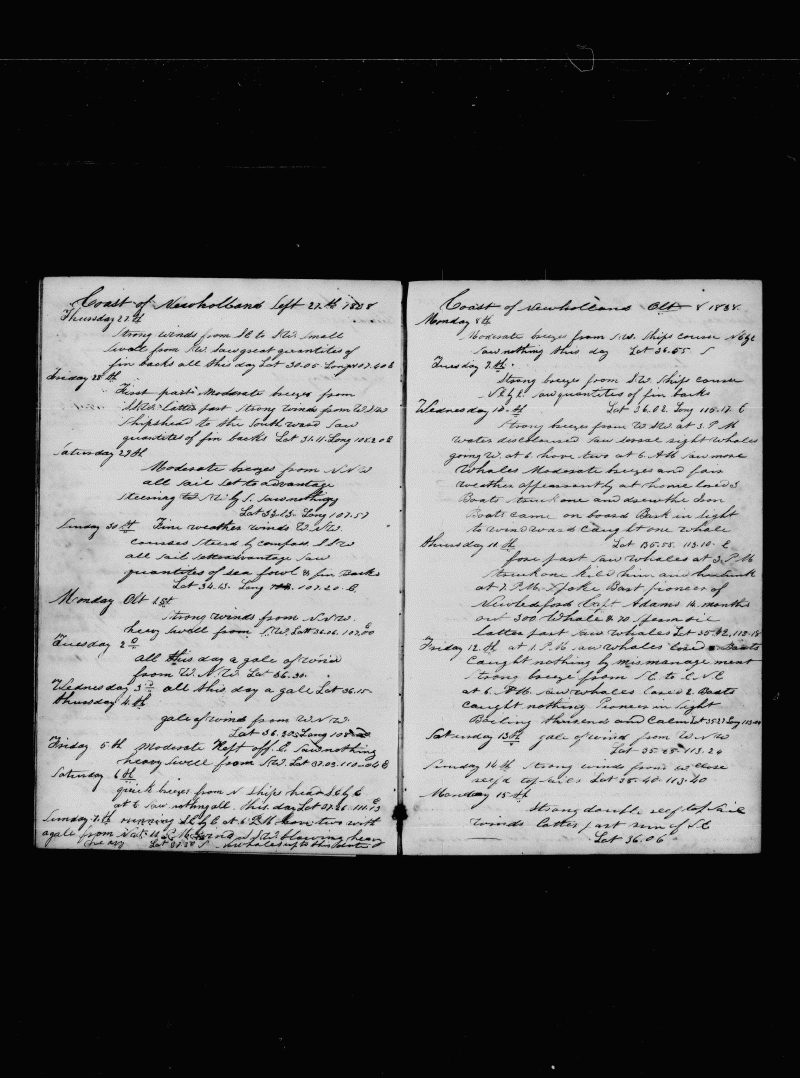 Coast of Newholland Sept 27th 1838
Thursday 27th
Strong winds from SE to SW small
swell from SW. Saw great quantites of
fin backs all this day Lat 30.05 Long 107.40 E
Friday 28th
First part Moderate breezes from
SSW. latter part strong winds from WSW
Ships head to the South ward Saw
quantites of fin backs Lat 34.11 Long 108.20 E
Saturday 29th
Moderate breezes from NNW
all sail set to advantage
steering by S. Saw nothing
Lat 34.13. Long 107.57
Sunday 30th Fine weather winds WNW.
courses Steerd by compass SSW
all sail to advantage Saw
quantites of sea fowl & fin backs
Lat 34.43. Long 107.20. E.
Monday Oct 1st
Strong winds from NNW.
heavy swell from SW. Lat 36.06. 107.00
Tuesday 2
all this day a gale of wind
from W.N.W. Lat 36.30.
Wednesday 3 all this day a gale Lat 36.15
thursday 4th
gale of wind from WNW.
Lat 36.30. Long 108
Friday 5th Moderate Kept off E. Saw nothing
heavy swell from SW. Lat 37.03. 110.04 E
Saturday 6th
quick breezes from N Ships head
at 6 Saw nothing all this day Lat 37.26
Sunday 7th running at 6 P.M. hove two with
a gale from NW. blowing heavy
Lat whales up to this date
Coast of Newholland Oct 8 1838.
Monday 8th
Moderate breezes from S.W. Ships course
Saw nothing this day Lat 36.55 S
Tuesday 9th.
Strong breezes from SW. Ships course
saw quantites of fin backs
Wednesday 10th Lat 36.02. Long 115.17. E
Strong breezes from WSW at 3. P.M
water discoloured Saw several right whales
going W. at 6. hove two at 6. AM saw more
Whales Moderate breezes and fair
weather at home
Boats struck one and drew the Iron
Boats came on board Bark in Sight
to wind ward caught one whale
thursday 11th Lat 35.55. 113.10. E
fore part Saw Whales at 3. P.M
Struck one kill'd him and he sunk
at 7. P.M. Spoke Bark pioneer of
Newbedford Capt Adams 14 months
out 300 Whale & 70 Sperm oil
latter part Saw Whales Lat 35.42. 113.18
Friday 12th at 1 P.M Saw whales Boats
Caught nothing by mismanagement
strong breezes from SE to ENE
at 6. P.M. Saw whales 2. Boats
caught nothing. Pioneer in Sight
Boiling and Calm Lat 35.27 Long
Saturday 13th gale of wind from WNW
Lat 35.25. 113.24
Sunday 14th Strong winds from W close
reef'd topsails Lat 35.40. 113.40
Monday 15th
Strong double reef top sail
Winds latter part
Lat 36.06